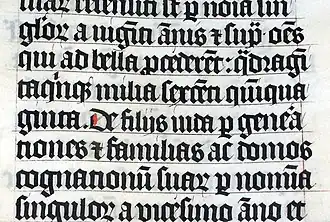 suar recensiti st p noīa sin
gloꝝ a uigīti ānis ⁊ sup̄ · oēs
qui ad bella ꝓcederēt : qͣdragīͣ
taqͥnqꝫ milia sexcēti quīqua
ginta. De filiis iuda p genea
tiones ⁊ familias ac domos
cognationū suaꝝ p nomīa
singuloꝝ a vicesimo āno et